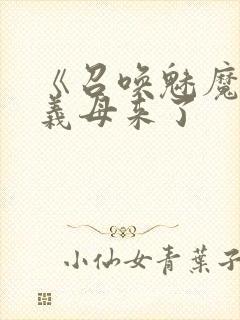 《召唤魅魔
義母来了
小仙女青葉子